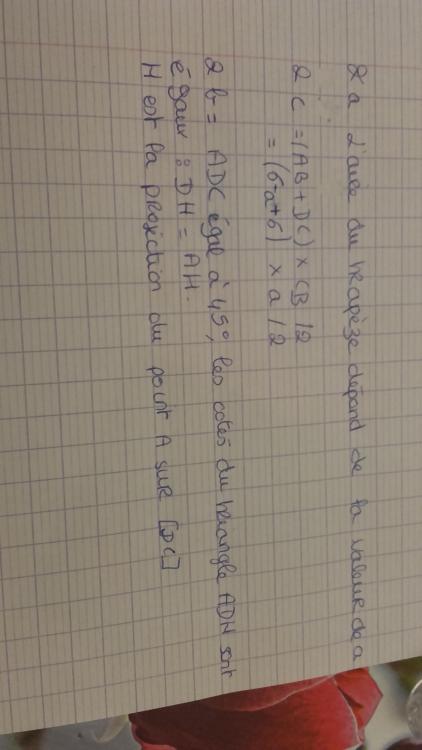 2 a L'aire du trapèze dépend de la valeur de a
2 c = (AB + DC) × CB / 2
= (6-a+6) × a / 2
2 b = ADC égal à 45°, les cotés du triangle ADH sont
égaux : DH = AH.
H est la projection du point A sur [DC]